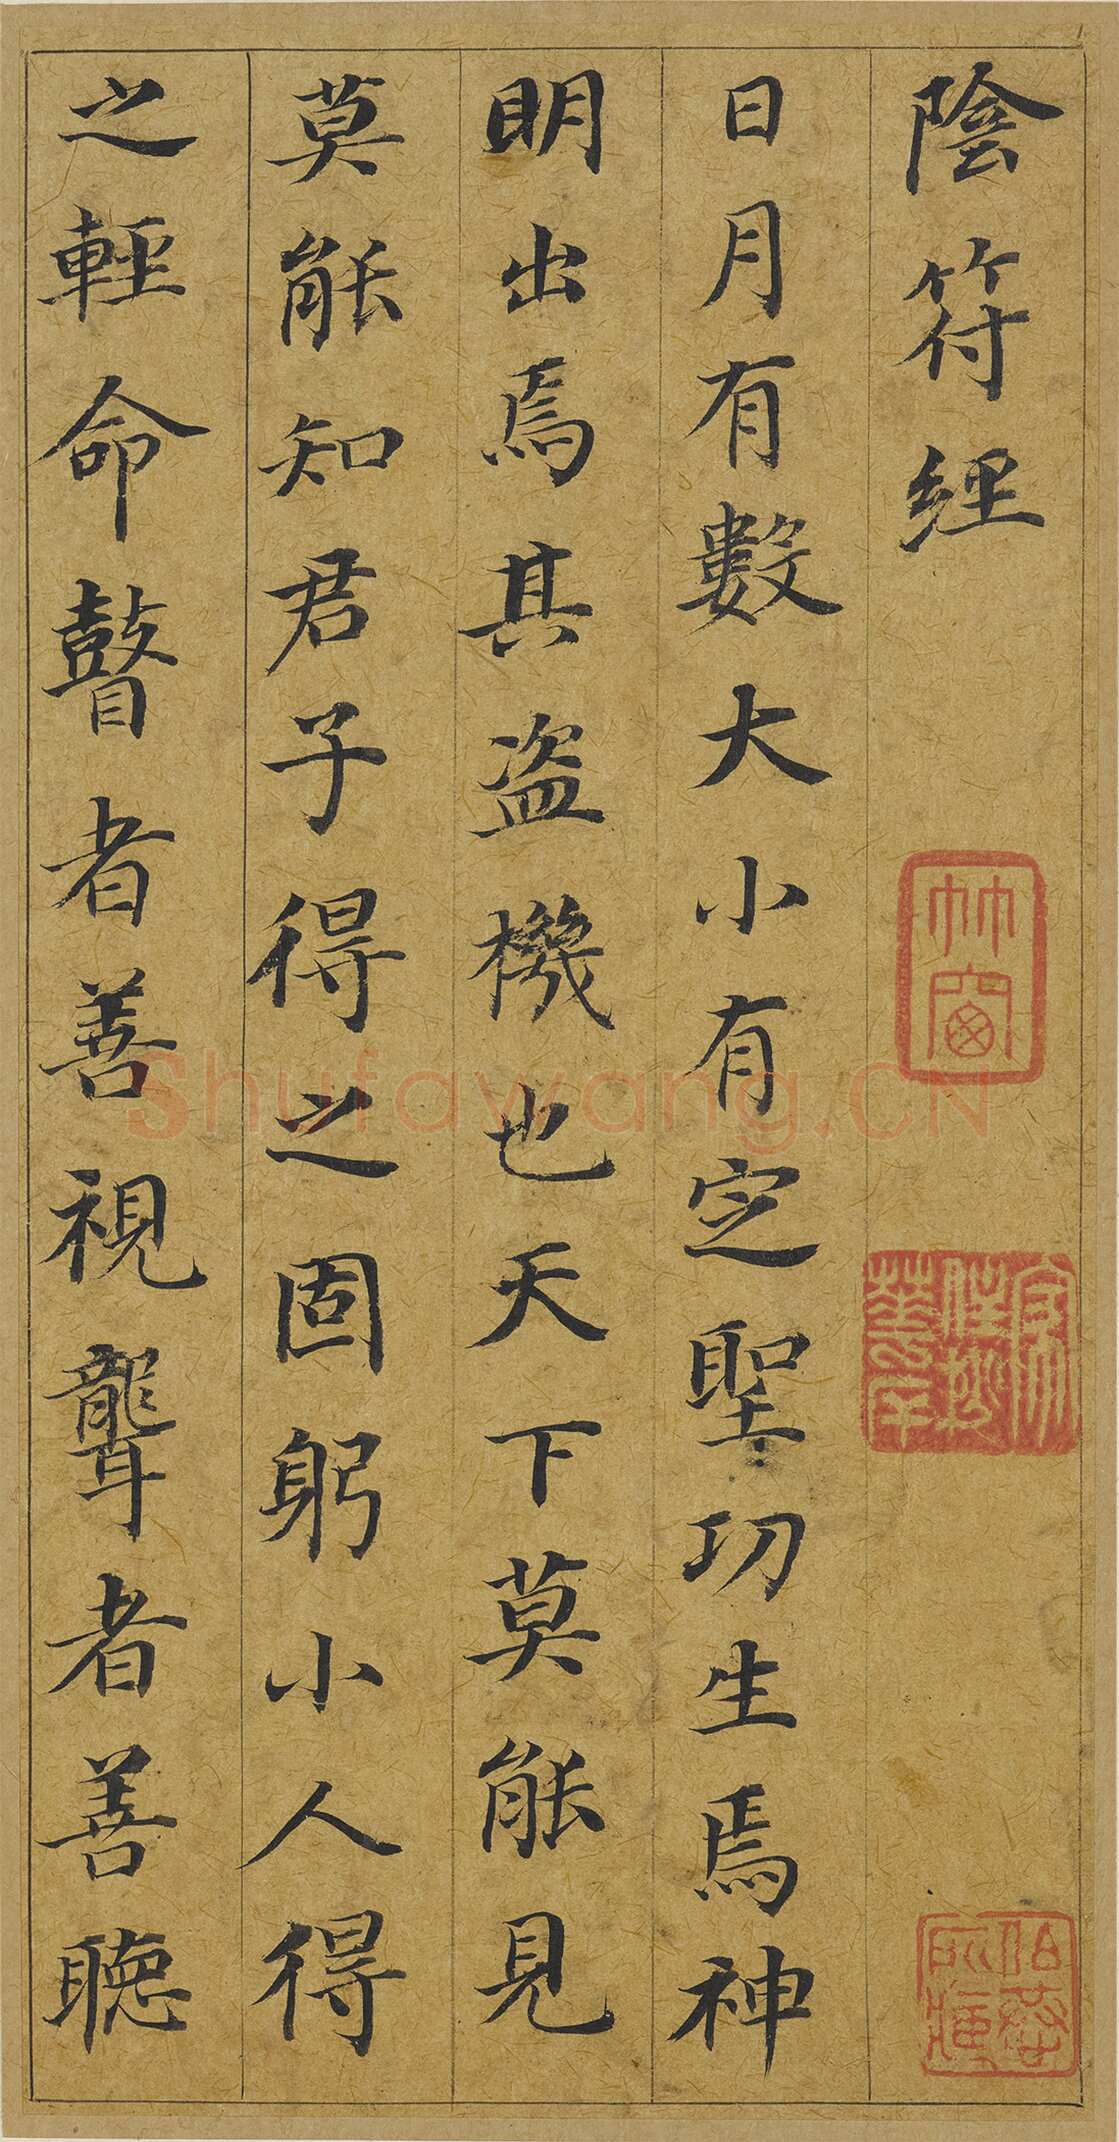 陰符經
日月有數大小有定聖功生焉神
明出焉其盗機也天下莫能見
莫能知君子得之固躬小人得
之輕命瞽者善視聾者善聴
竹窗
Shufawang.CN